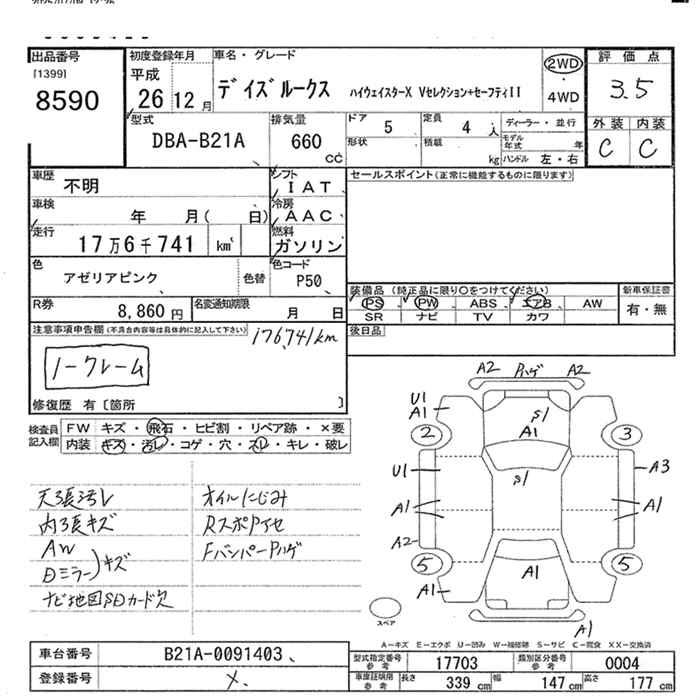 出品番号
[1399]
8590
初度登録年月
平成
26年 12月
車名・グレード
デイズルークス ハイウェイスターX Vセレクション+セーフティII
2WD
4WD
評価点
3.5
外装 内装
C C
型式
DBA-B21A
排気量
660
cc
ドア 5
定員 4 人
形状
積載 kg
ディーラー・並行
モデル年式 年
ハンドル 左・右
車歴
不明
シフト
IAT
セールスポイント(正常に機能するものに限ります)
車検
年 月( 日)
冷房
AAC
走行
17万6千741 km
燃料
ガソリン
色
アゼリアピンク
色替
色コード
P50
装備品(純正品に限り○をつけてください)
PS PW ABS エアB AW
SR ナビ TV カワ
新車保証書
有・無
R券
8,860円
名変通知期限
月 日
後日品
注意事項申告欄(不具合内容等は具体的に記入して下さい)
176,741km
ノークレーム
修復歴 有〔箇所 〕
検査員記入欄
FW キズ・飛石・ヒビ割・リペア跡・×要
内装 キズ・汚レ・コゲ・穴・スレ・キレ・破レ
天張汚レ
内張キズ
AW
Dミラー
キズ
ナビ地図SDカード欠
オイルにじみ
RスポPイセ
FバンパーPハゲ
A2 Pハゲ A2
U1
A1
S1
A1
2
3
U1
S1
A3
A1
A1
A2
5
5
A1
A1
A1
スペア
A-キズ E-エクボ U-凹み W-補修跡 S-サビ C-腐食 XX-交換済
車台番号
B21A-0091403
登録番号
×
型式指定番号 参考
17703
類別区分番号 参考
0004
車度証明際 参考
長さ 339 cm
幅 147 cm
高さ 177 cm